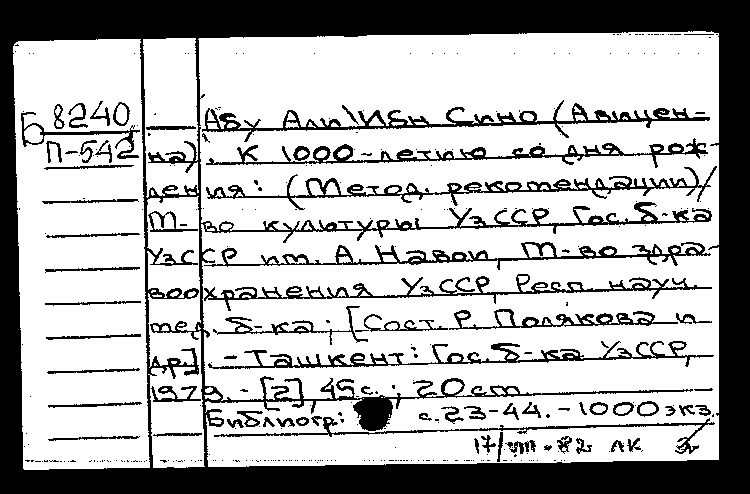 Б 8240
П-542
Абу Али Ибн Сино (Авицен-
на). К 1000-летию со дня рож-
дения: (Метод. рекомендации)/
М-во культуры УзССР, Гос. б-ка
УзССР им. А. Навои, М-во здра-
воохранения УзССР, Респ. науч.
мед. б-ка; [Сост. Р. Полякова и
др.]. - Ташкент: Гос. б-ка УзССР,
1979. - [2], 45 с.; 20 cm.
Библиогр: с. 23-44. - 1000 экз.
17/VIII-82 АК